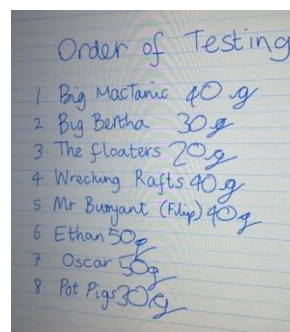 Order of Testing
1 Big MacTanic 40g
2 Big Bertha 30g
3. The floaters 20g
4 Wrecking Rafts 40g
5 Mr Buoyant (Filip) 40g
6 Ethan 50g
7 Oscar 50g
8 Pot Pigs 30g